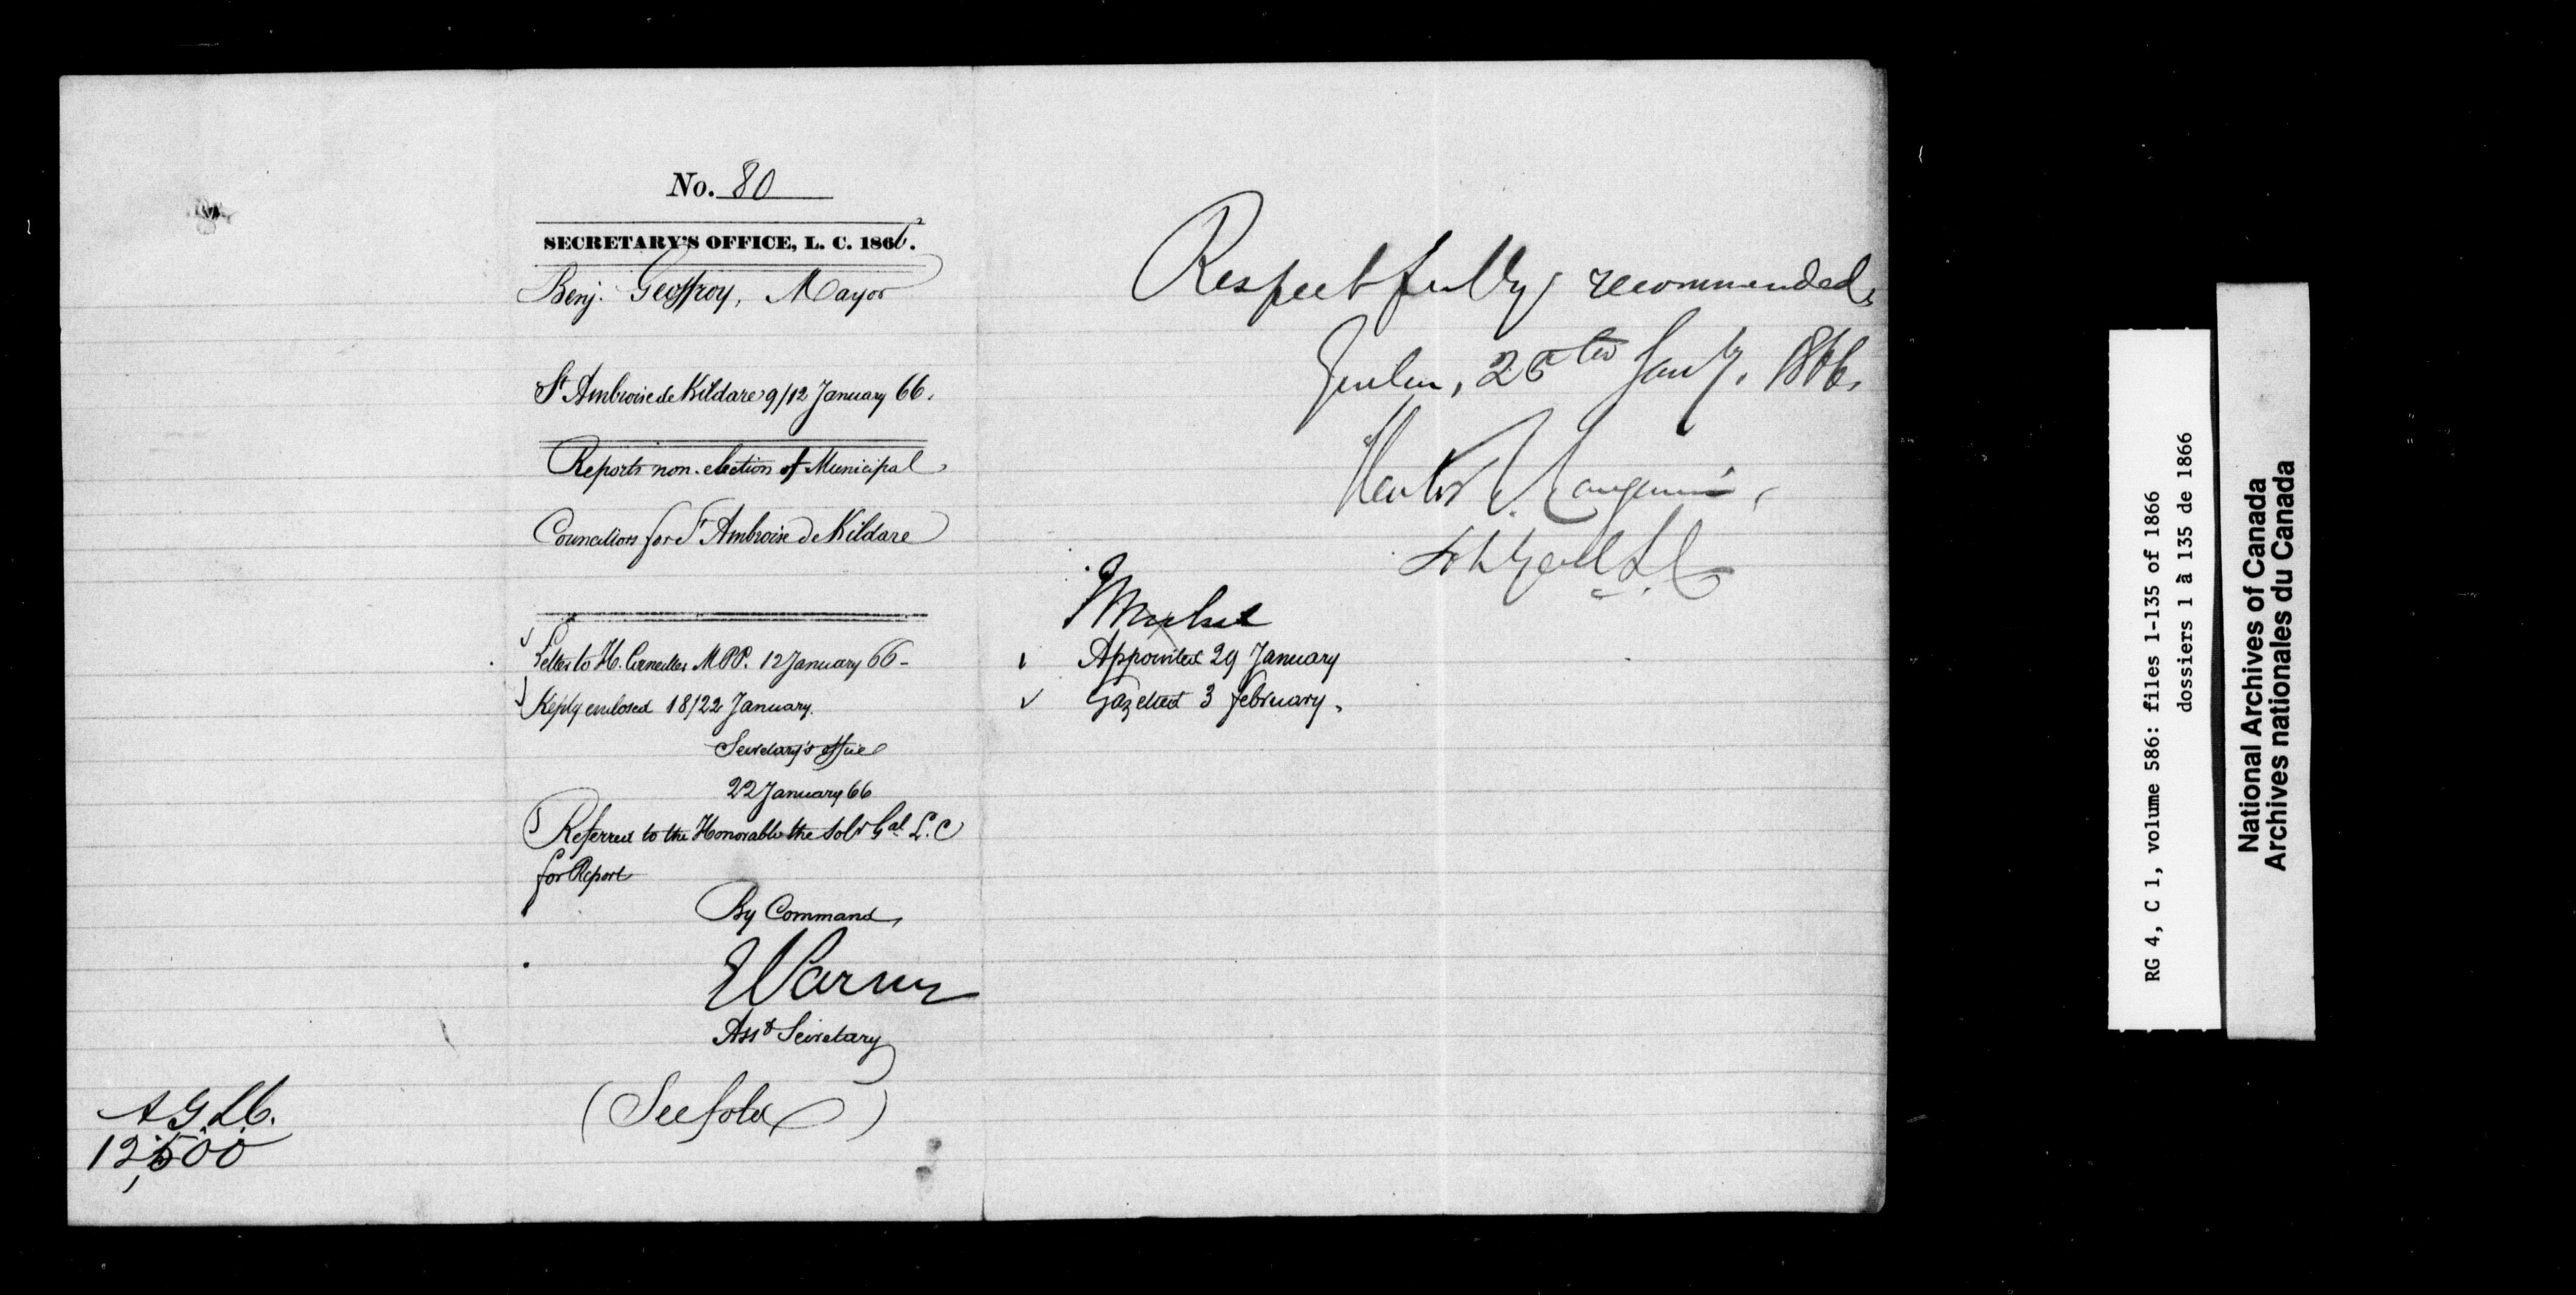 No. 80
SECRETARY'S OFFICE, L. C. 1866.
Benj. Geoffroy, Mayor
St Ambroise de Kildare 9/12 January 66.
Reports non-election of Municipal
Councillors for St Ambroise de Kildare
Letter to H. Cornellier M.P.P. 12 January 66-
Reply enclosed 18/22 January.
Secretary's office
22 January 66
Referred to the Honorable the Solr Gal L. C
for Report
By Command,
Asst Secretary
(See fold)
A. G. L. C.
12,500
Respectfully recommended,
25th Jany. 1866.
Hector L. Langevin,
Sol. Genl. L. C.
Appointed 29 January
Gazetted 3 February.
RG 4, C 1, volume 586: files 1-135 of 1866
dossiers 1 à 135 de 1866
National Archives of Canada
Archives nationales du Canada